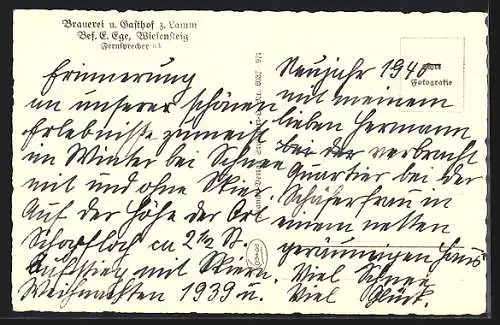 Brauerei u. Gasthof z. Lamm
Bes. E. Ege, Wiesensteig
Fernsprecher
Echte
Fotografie
Erinnerung
an unserer schönen
Erlebnisse zumeist
im Winter bei Schnee
mit und ohne Skier.
Auf der Höhe der Ort
Schopfloch ca 2 1/2 St.
Aufstieg mit Skiern.
Weihnachten 1939 u.
Neujahr 1940
mit meinem
lieben Hermann
bei der verbracht
Quartier bei der
Schäferfrau in
einem netten
geräumigen Haus
Viel Schnee
Viel Glück.